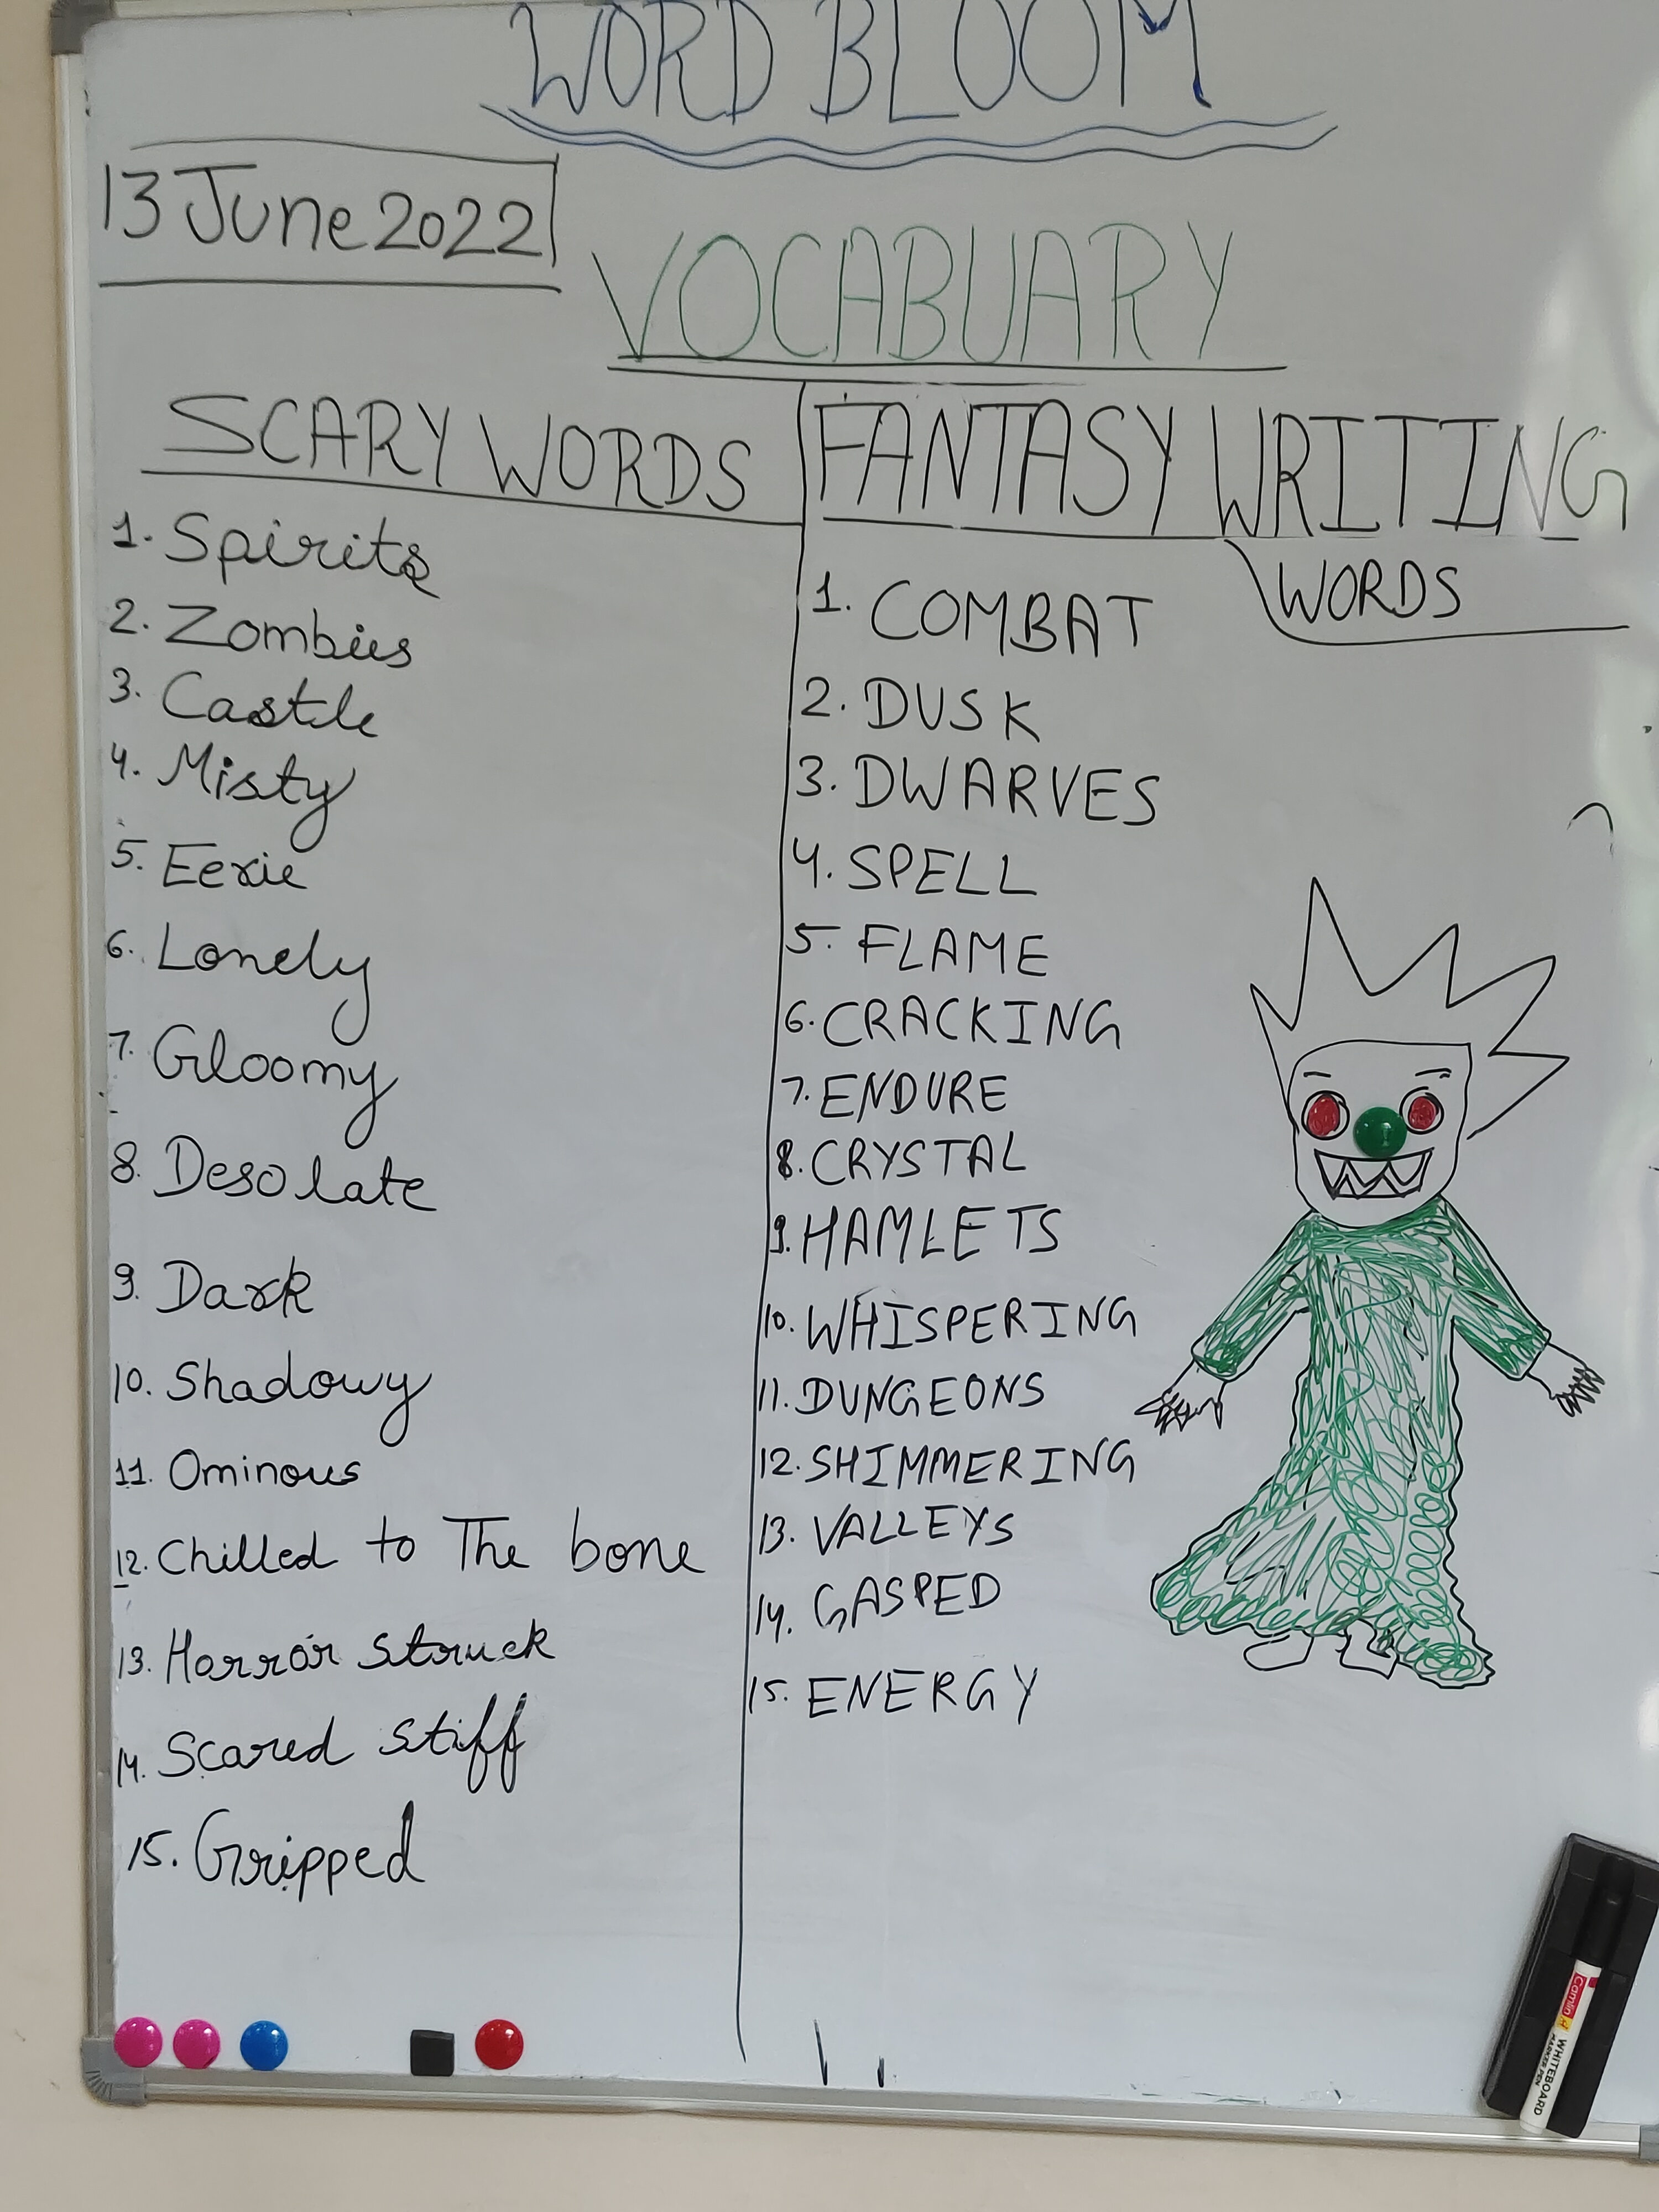 WORD BLOOM
13 June 2022
VOCABUARY
SCARY WORDS
1. Spirits
2. Zombies
3. Castle
4. Misty
5. Eerie
6. Lonely
7. Gloomy
8. Desolate
9. Dark
10. Shadowy
11. Ominous
12. Chilled to The bone
13. Horror struck
14. Scared stiff
15. Gripped
FANTASY WRITING
WORDS
1. COMBAT
2. DUSK
3. DWARVES
4. SPELL
5. FLAME
6. CRACKING
7. ENDURE
8. CRYSTAL
9. HAMLETS
10. WHISPERING
11. DUNGEONS
12. SHIMMERING
13. VALLEYS
14. GASPED
15. ENERGY
camlin
WHITEBOARD
MARKER PEN